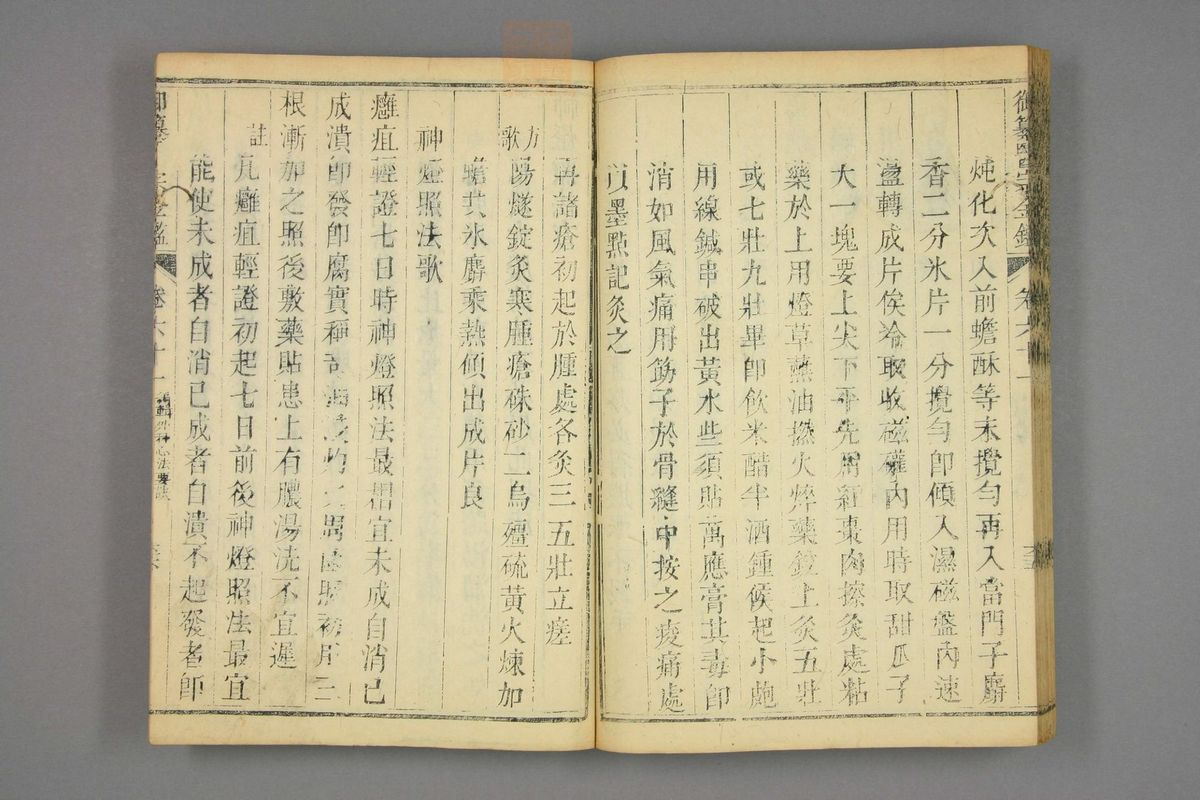 御纂醫宗金鑑 卷六十一
炖化次入前蟾酥等末攪勻再入當門子麝
香二分氷片一分攪勻卽傾入濕磁盤內速
盪轉成片俟冷取收磁礶內用時取甜瓜子
大一塊要上尖下平先用紅棗肉擦灸處粘
藥於上用燈草蘸油撚火焠藥錠上灸五壯
或七壯九壯畢卽飮米醋半酒鍾候起小皰
用線鍼串破出黃水些須貼萬應膏其毒卽
消如風氣痛用筯子於骨縫中按之痠痛處
以墨點記灸之
再諸瘡初起於腫處各灸三五壯立瘥
方歌 陽燧錠灸寒腫瘡硃砂二烏殭硫黃火煉加
蟾共氷麝乘熱傾出成片良
神燈照法歌
癰疽輕證七日時神燈照法最罡宜未成自消已
成潰卽發卽腐實稱
根漸加之照後敷藥貼患上有膿湯洗不宜遲
註 凡癰疽輕證初起七日前後神燈照法最宜
能使未成者自消已成者自潰不起發者卽
御纂醫宗金鑑 卷六十一 編輯外科心法要訣